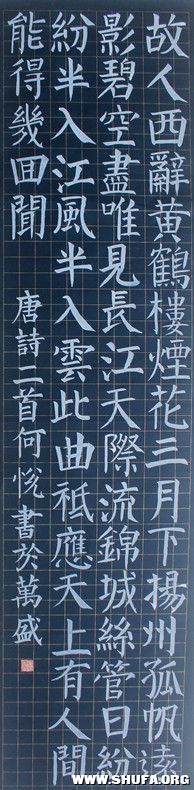 故人西辭黃鶴樓煙花三月下揚州孤帆遠
影碧空盡唯見長江天際流錦城絲管日紛
紛半入江風半入雲此曲祗應天上有人間
能得幾回聞
唐詩二首何悅書於萬盛
WWW.SHUFA.ORG